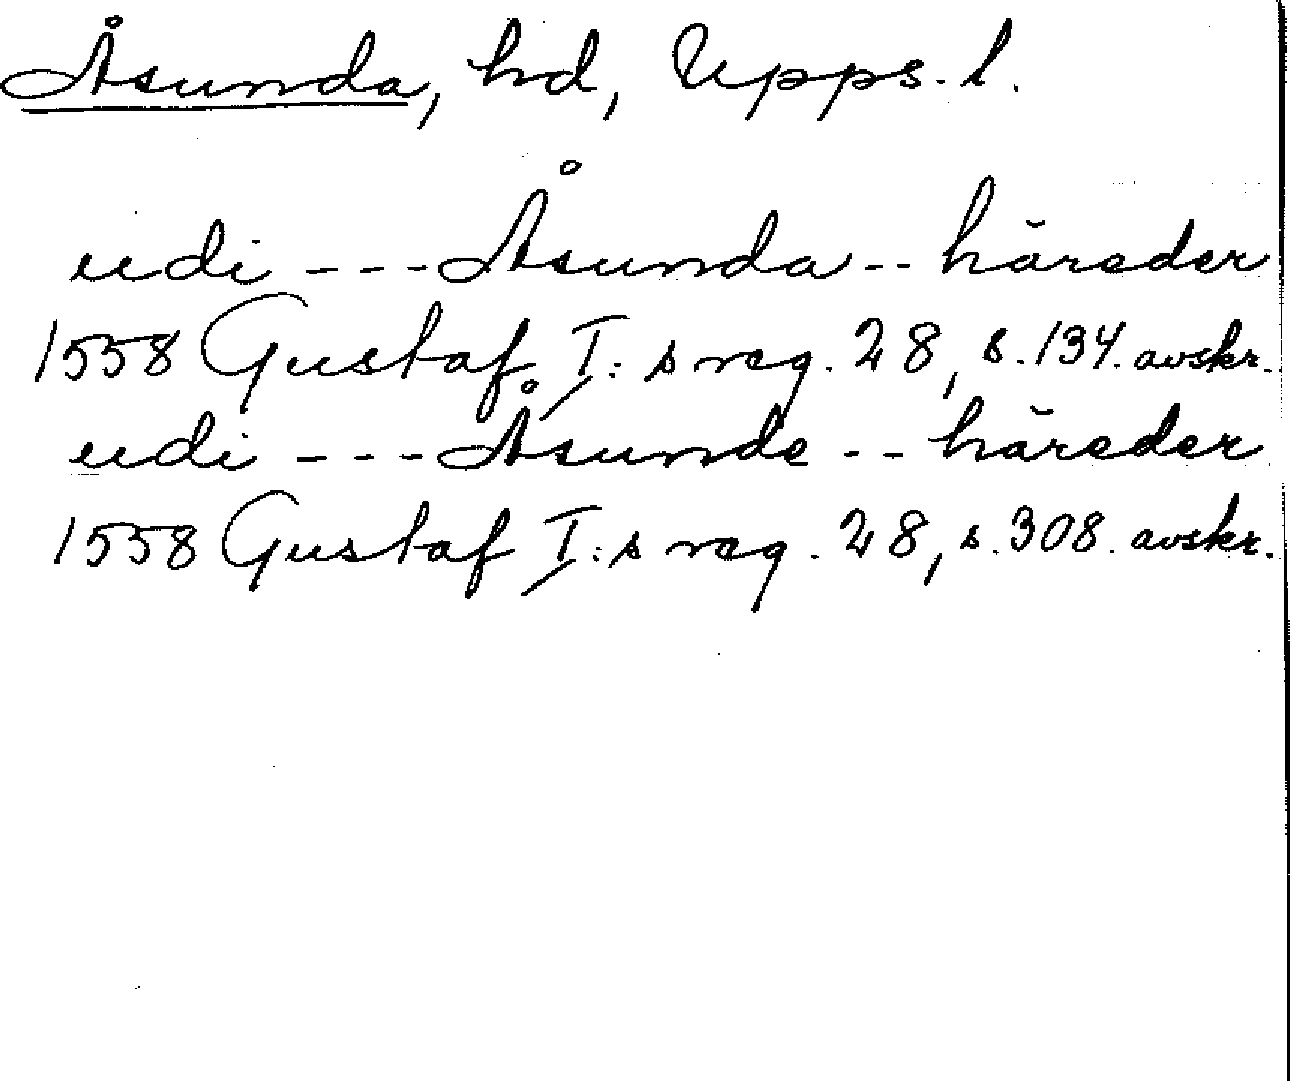 Åsunda, hd, Upps. l.
udi - - - Åsunda - - häreder
1558 Gustaf I:s reg. 28, s. 134. avskr.
udi - - - Åsunde - - häreder
1558 Gustaf I:s reg. 28, s. 308. avskr.